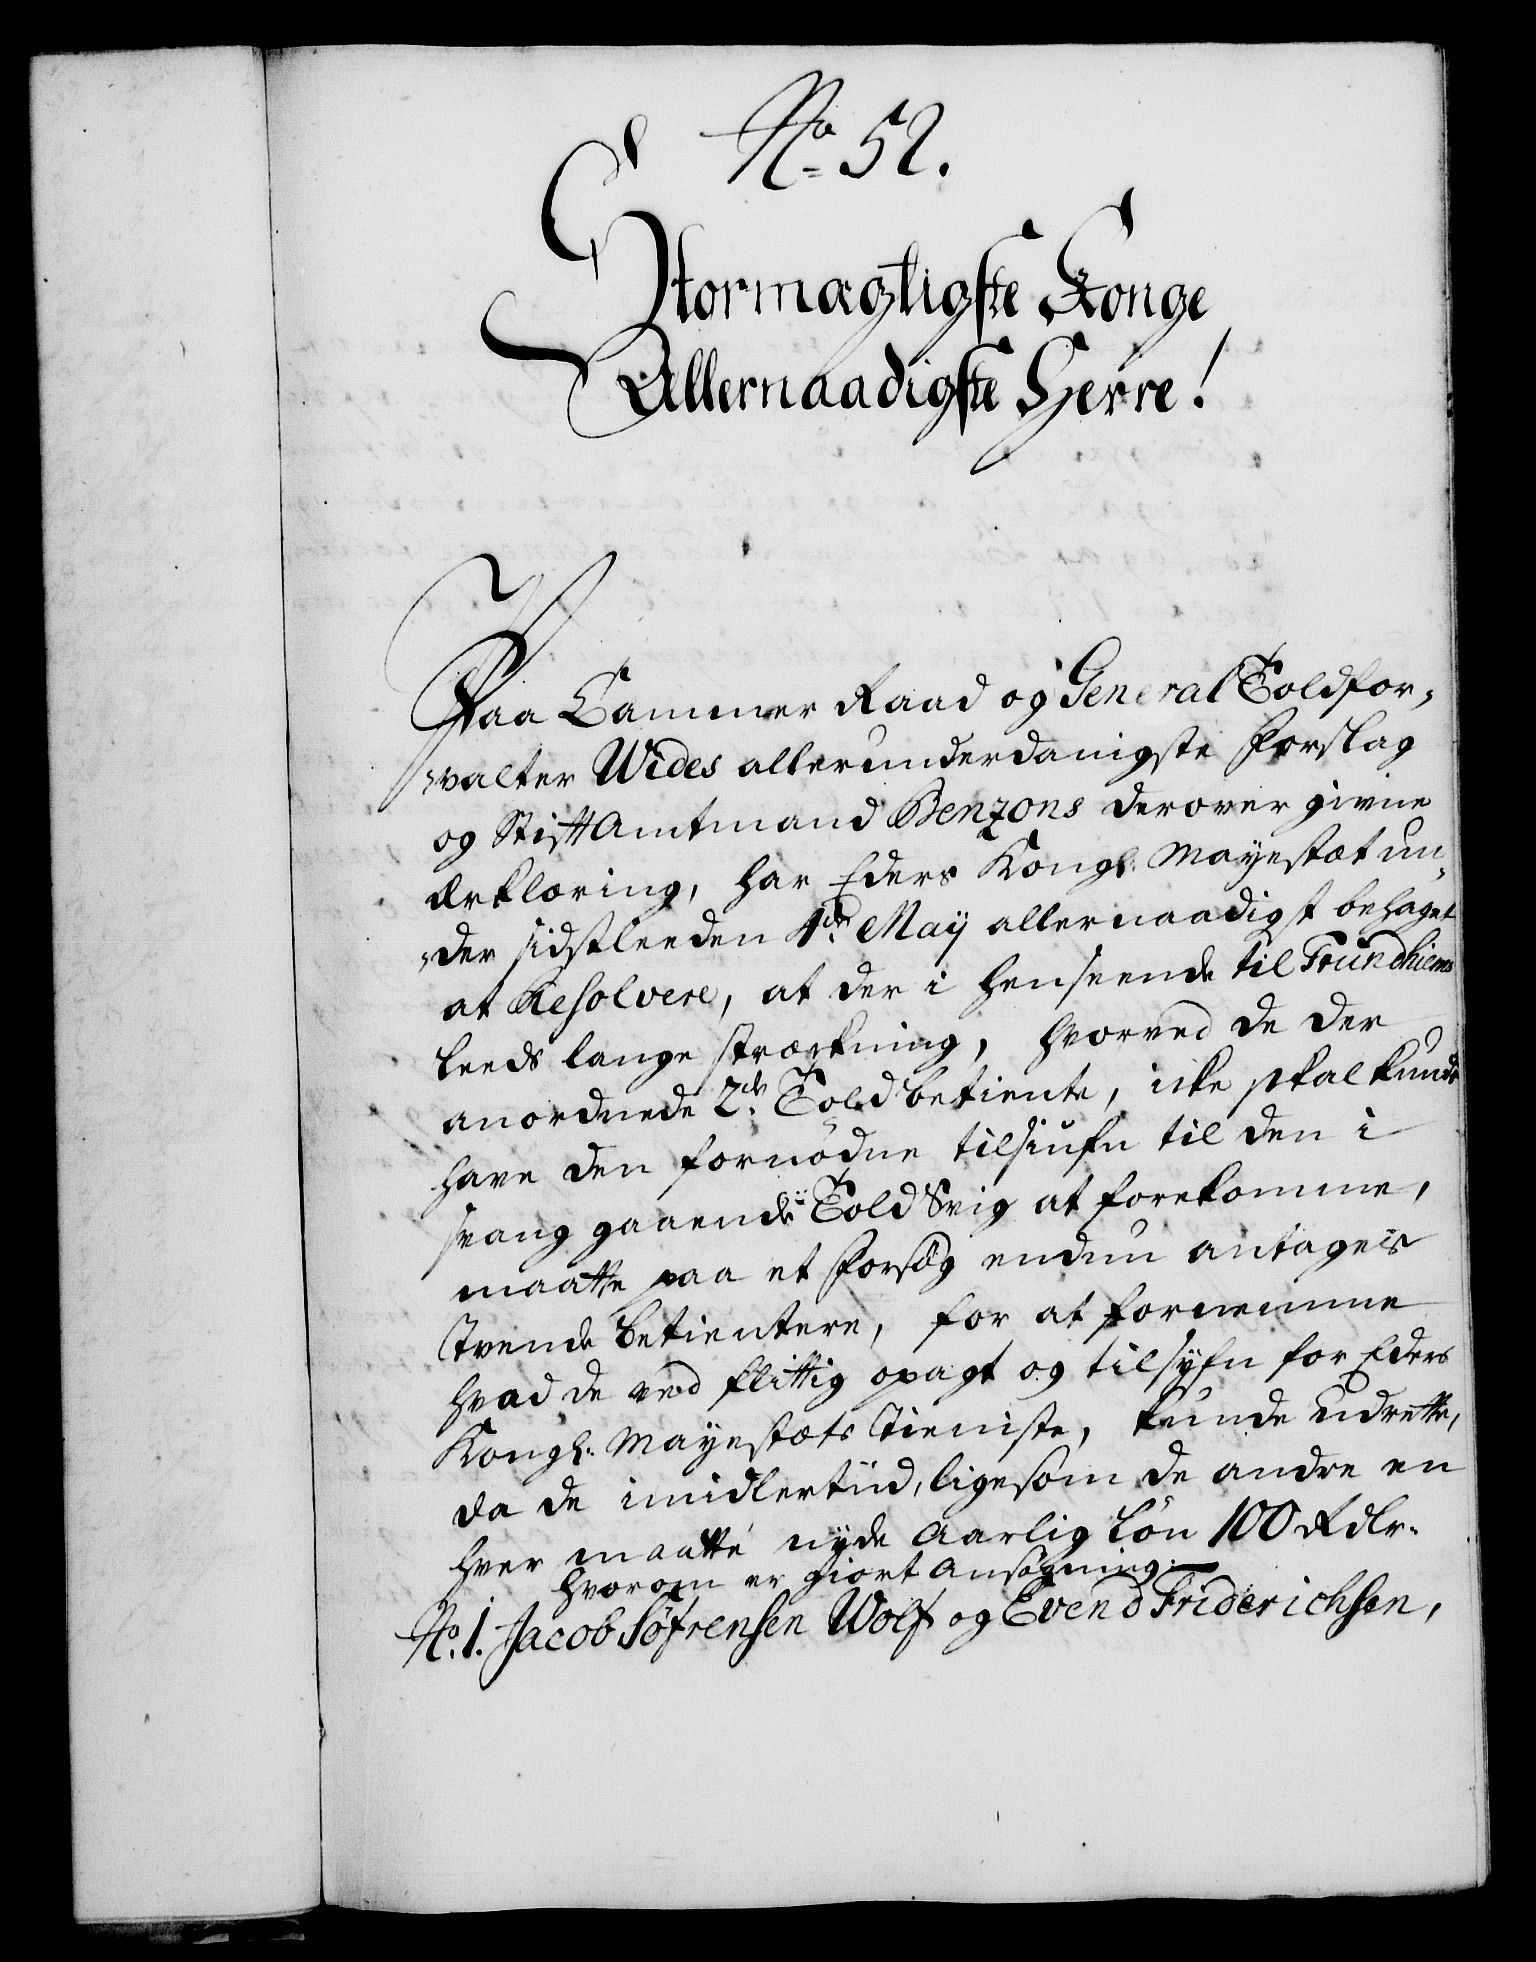 No. 52.
Stormægtigste Konge
Allernaadigste Herre!
Paa Cammer Raad og General Toldfor-
valter Wides allerunderdanigste Forslag
og Stiftamtmand Benzons derover givne
Erklæring, har Eders Kongl: Mayestæt un-
der sidstleeden 4de May allernaadigst behaget
at Resolvere, at der i henseende til Trundhiems
leeds lange strækning, hvorved de der
anordnede 2de Told betiente, icke skal kunde
have den fornødne tilsiufn til den i
svang gaaende Told Svig at forekomme,
maatte paa et Forsøg endnu antages
tvende betientere, for at fornemme
hvad de ved flittig opagt og tilsyfn for Eders
Kongl: Mayestæts Tieniste, kunde udrette,
da de imidlertiid, ligesom de andre en
hver maatte nyde Aarlig Løn 100 Rdlr.
hvorom er giort Ansøgning:
No. 1. Jacob Søfrensen Wolf og Evend Friderichsen,